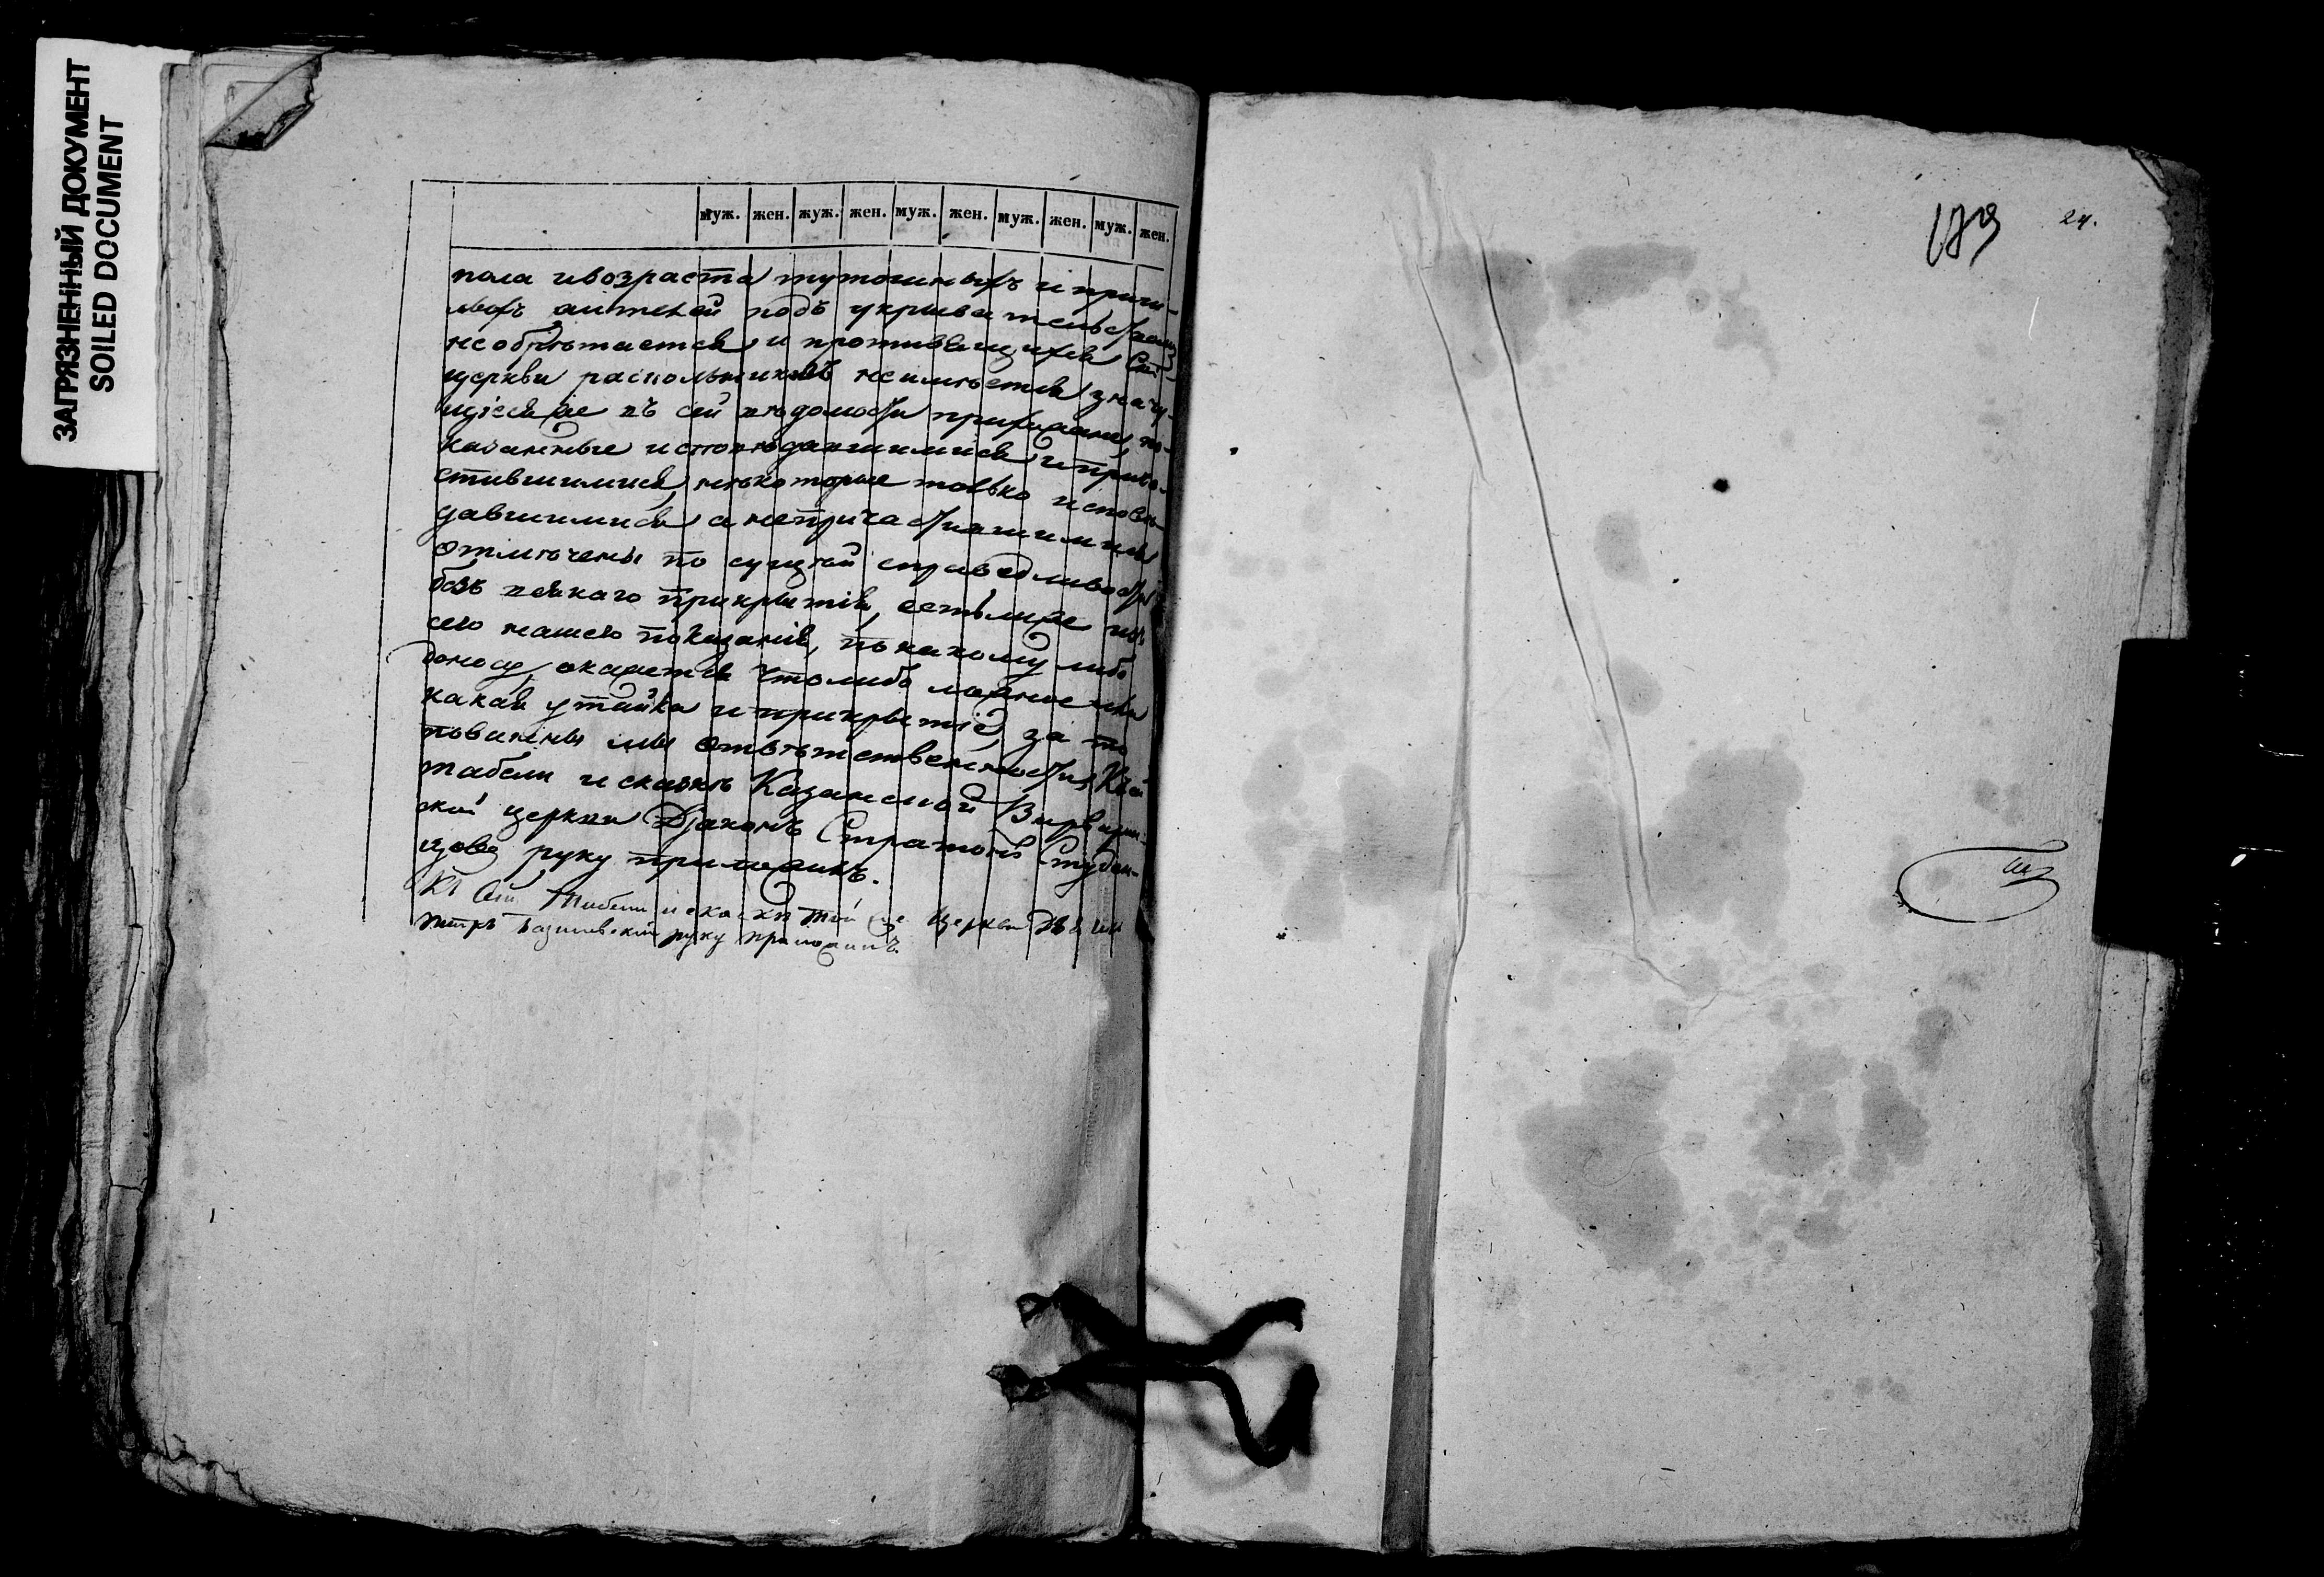 ЗАГРЯЗНЕННЫЙ ДОКУМЕНТ
SOILED DOCUMENT
муж. жен. муж. жен. муж. жен. муж. жен. муж. жен.
пола ивозраста тутошныхъ и приш-
лыхъ жителей подъ укрывательством
необрѣтается и противящихся Стй
церкви раскольниковъ неимѣется значу-
щіесяже въ сей вѣдомости прихожане, по-
казанные исповѣдавшимися ипріоб-
стившимися, нѣкоторые только исповѣ-
давшимися, а непричастившимися
отмѣчены по сущей справедливости
безъ всякаго прикрытія, естьлиже по
сею нашею показанія, по какому либо
доносу, окажется чтолибо ложное или
какая утайка и прикрытіе, за то
повинны мы отвѣтственности, Къ сей
табели и сказкѣ Казанской Варварин-
ской церкви Діаконъ Стратонъ Студен-
цовъ руку приложилъ.
Къ Сей Табели и сказкѣ той же Церкви
Петръ руку приложилъ.
179 24.